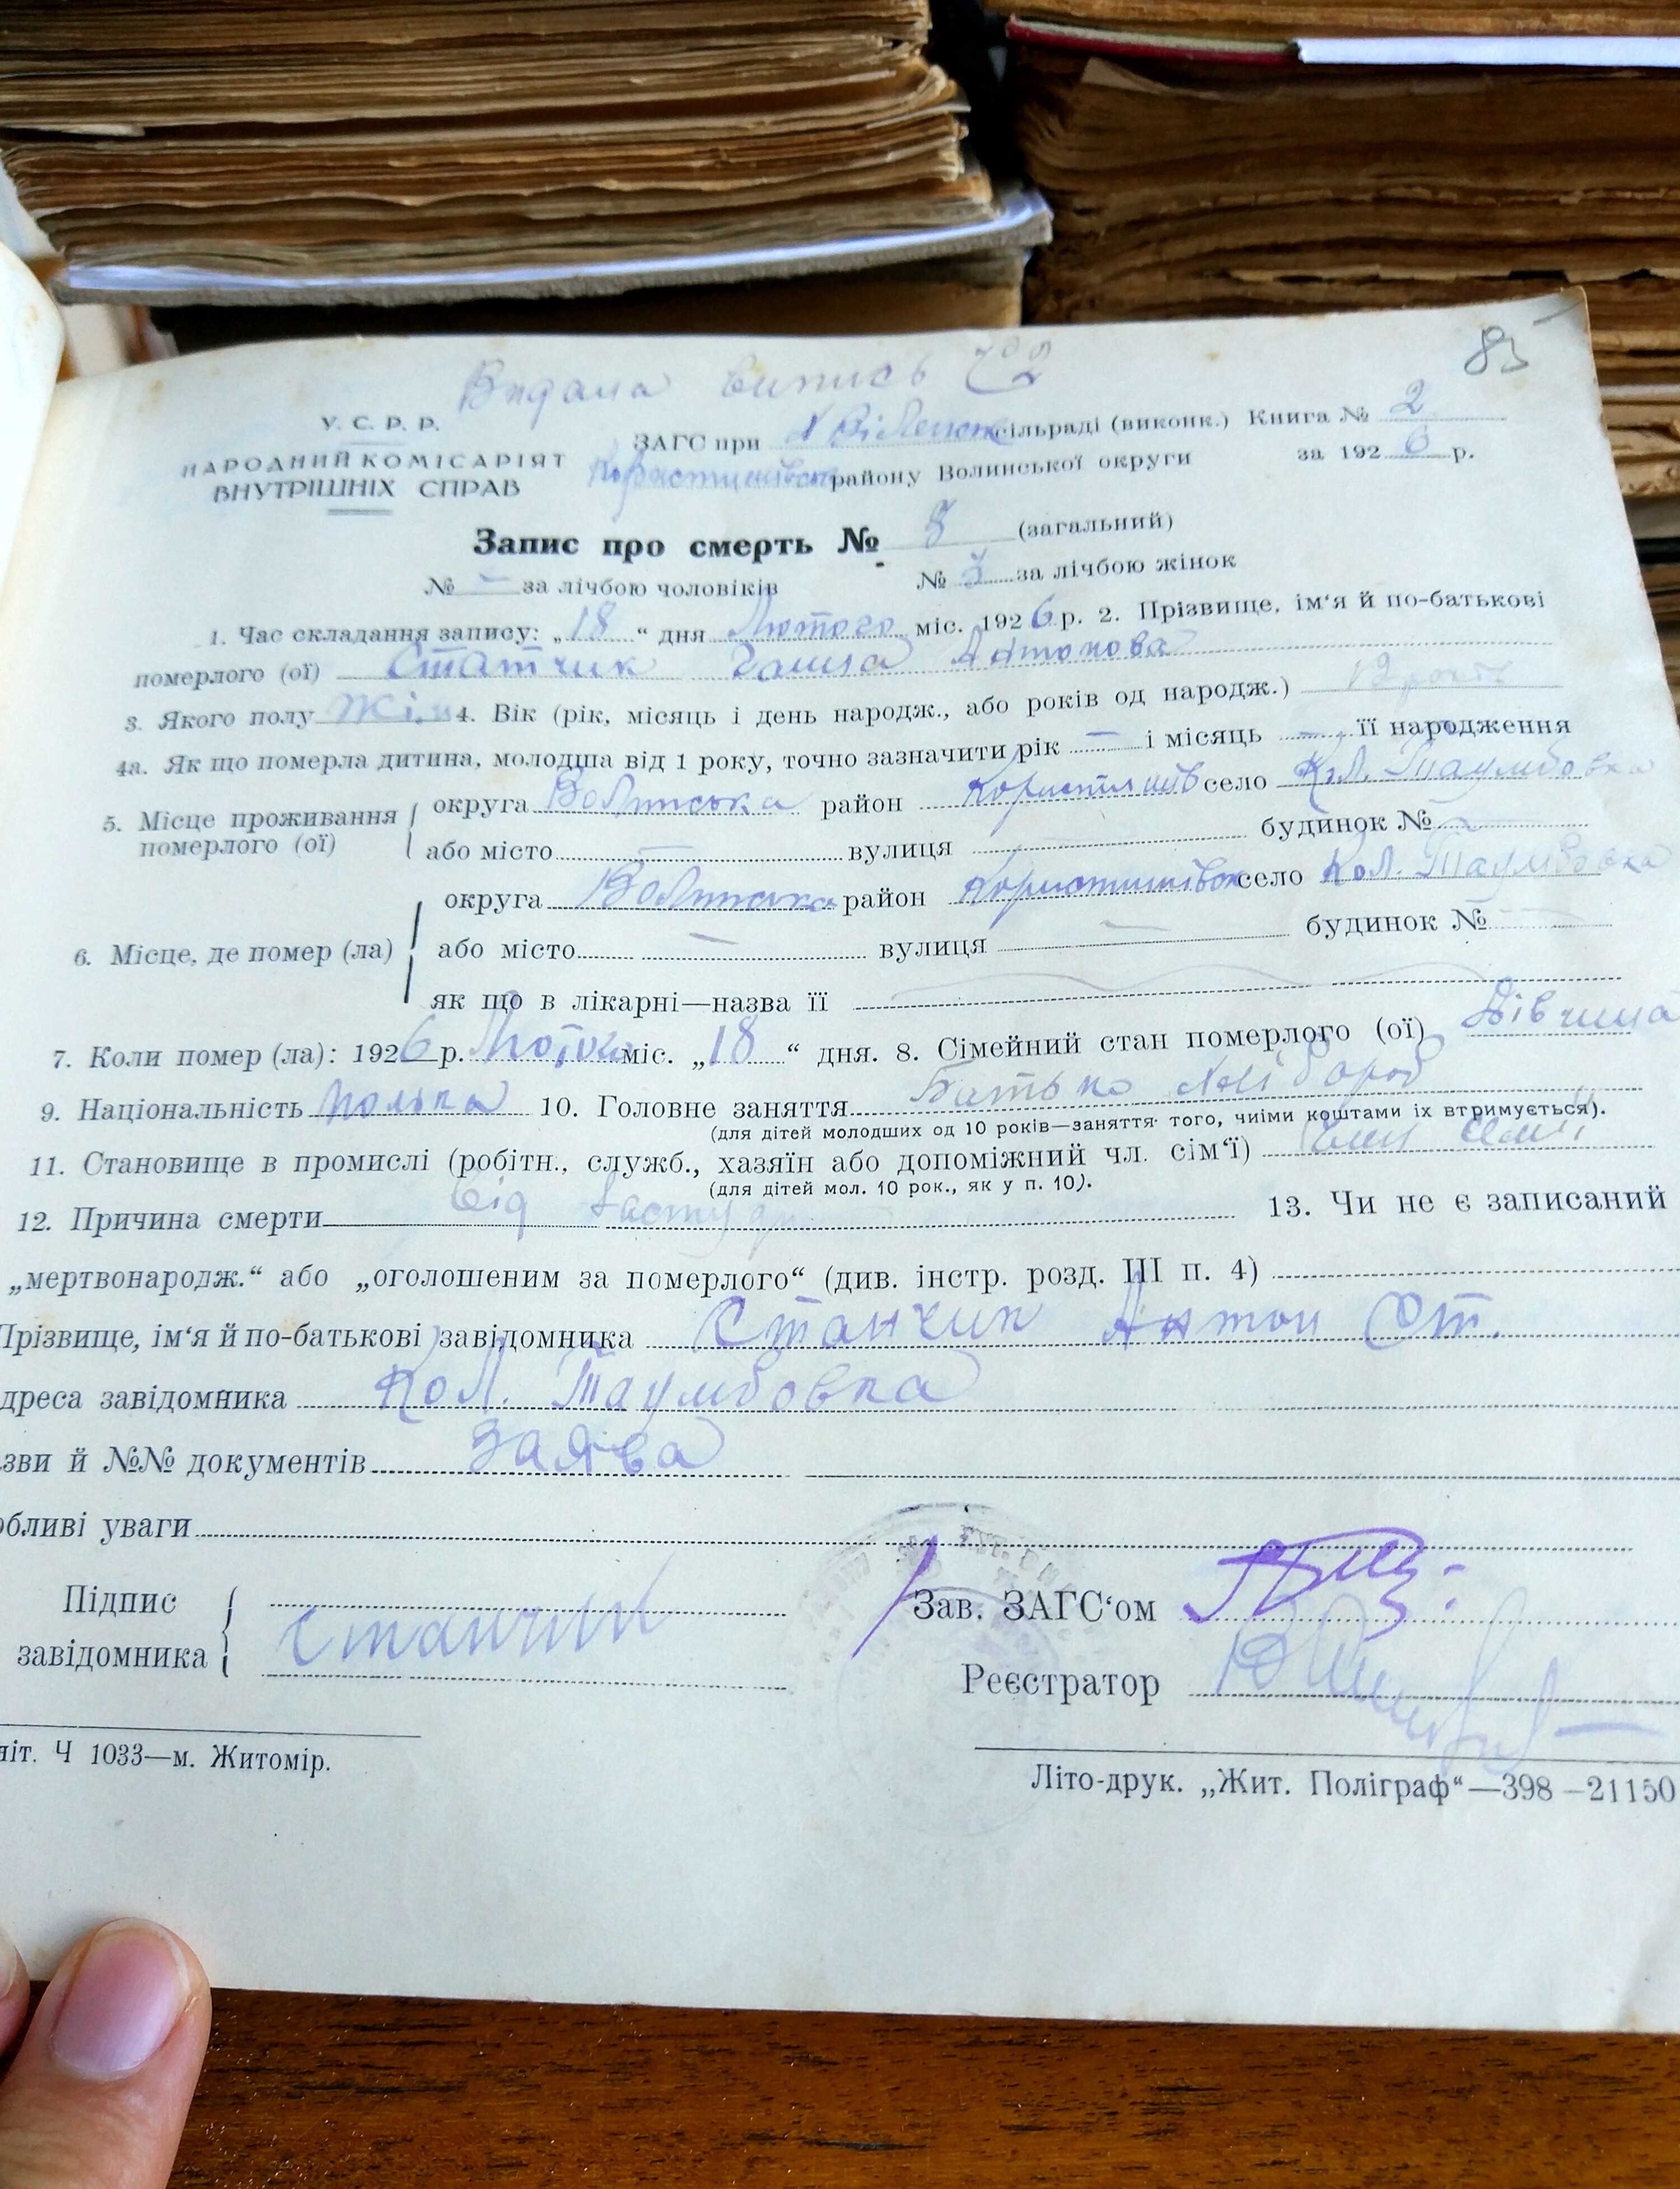 85
Видана випись
У. С. Р. Р.
НАРОДНИЙ КОМІСАРІЯТ
ВНУТРІШНІХ СПРАВ
ЗАГС при сільраді (виконк.) Книга № 2
району Волинської округи за 192 6 р.
Запис про смерть № 8 (загальний)
№ — за лічбою чоловіків № 3 за лічбою жінок
1. Час складання запису: „ 18 “ дня Лютого міс. 192 6 р. 2. Прізвище, ім‘я й по-батькові
померлого (ої) Станчик Антонова
3. Якого полу Жін. 4. Вік (рік, місяць і день народж., або років од народж.) 12 років
4а. Як що померла дитина, молодша від 1 року, точно зазначити рік — і місяць — її народження
5. Місце проживання померлого (ої)
округа Волинська район Коростишів село Кол. Таумбовка
або місто — вулиця будинок № —
6. Місце, де помер (ла)
округа Волинська район село Кол. Таумбовка
або місто — вулиця — будинок №
як що в лікарні—назва її
7. Коли помер (ла): 192 6 р. міс. „ 18 “ дня. 8. Сімейний стан померлого (ої) Дівчина
9. Національність полька 10. Головне заняття Батько хлібороб
(для дітей молодших од 10 років—заняття того, чиїми коштами їх втримується).
11. Становище в промислі (робітн., служб., хазяїн або допоміжний чл. сім‘ї) член сем'ї
(для дітей мол. 10 рок., як у п. 10).
12. Причина смерти від 13. Чи не є записаний
„мертвонародж.“ або „оголошеним за померлого“ (див. інстр. розд. III п. 4)
Прізвище, ім‘я й по-батькові завідомника Станчик Антон Ст.
дреса завідомника Кол. Таумбовка
зви й №№ документів заява
обливі уваги
Підпис завідомника Станчик
Зав. ЗАГС‘ом
Реєстратор
літ. Ч 1033—м. Житомір.
Літо-друк. „Жит. Поліграф“—398—21150